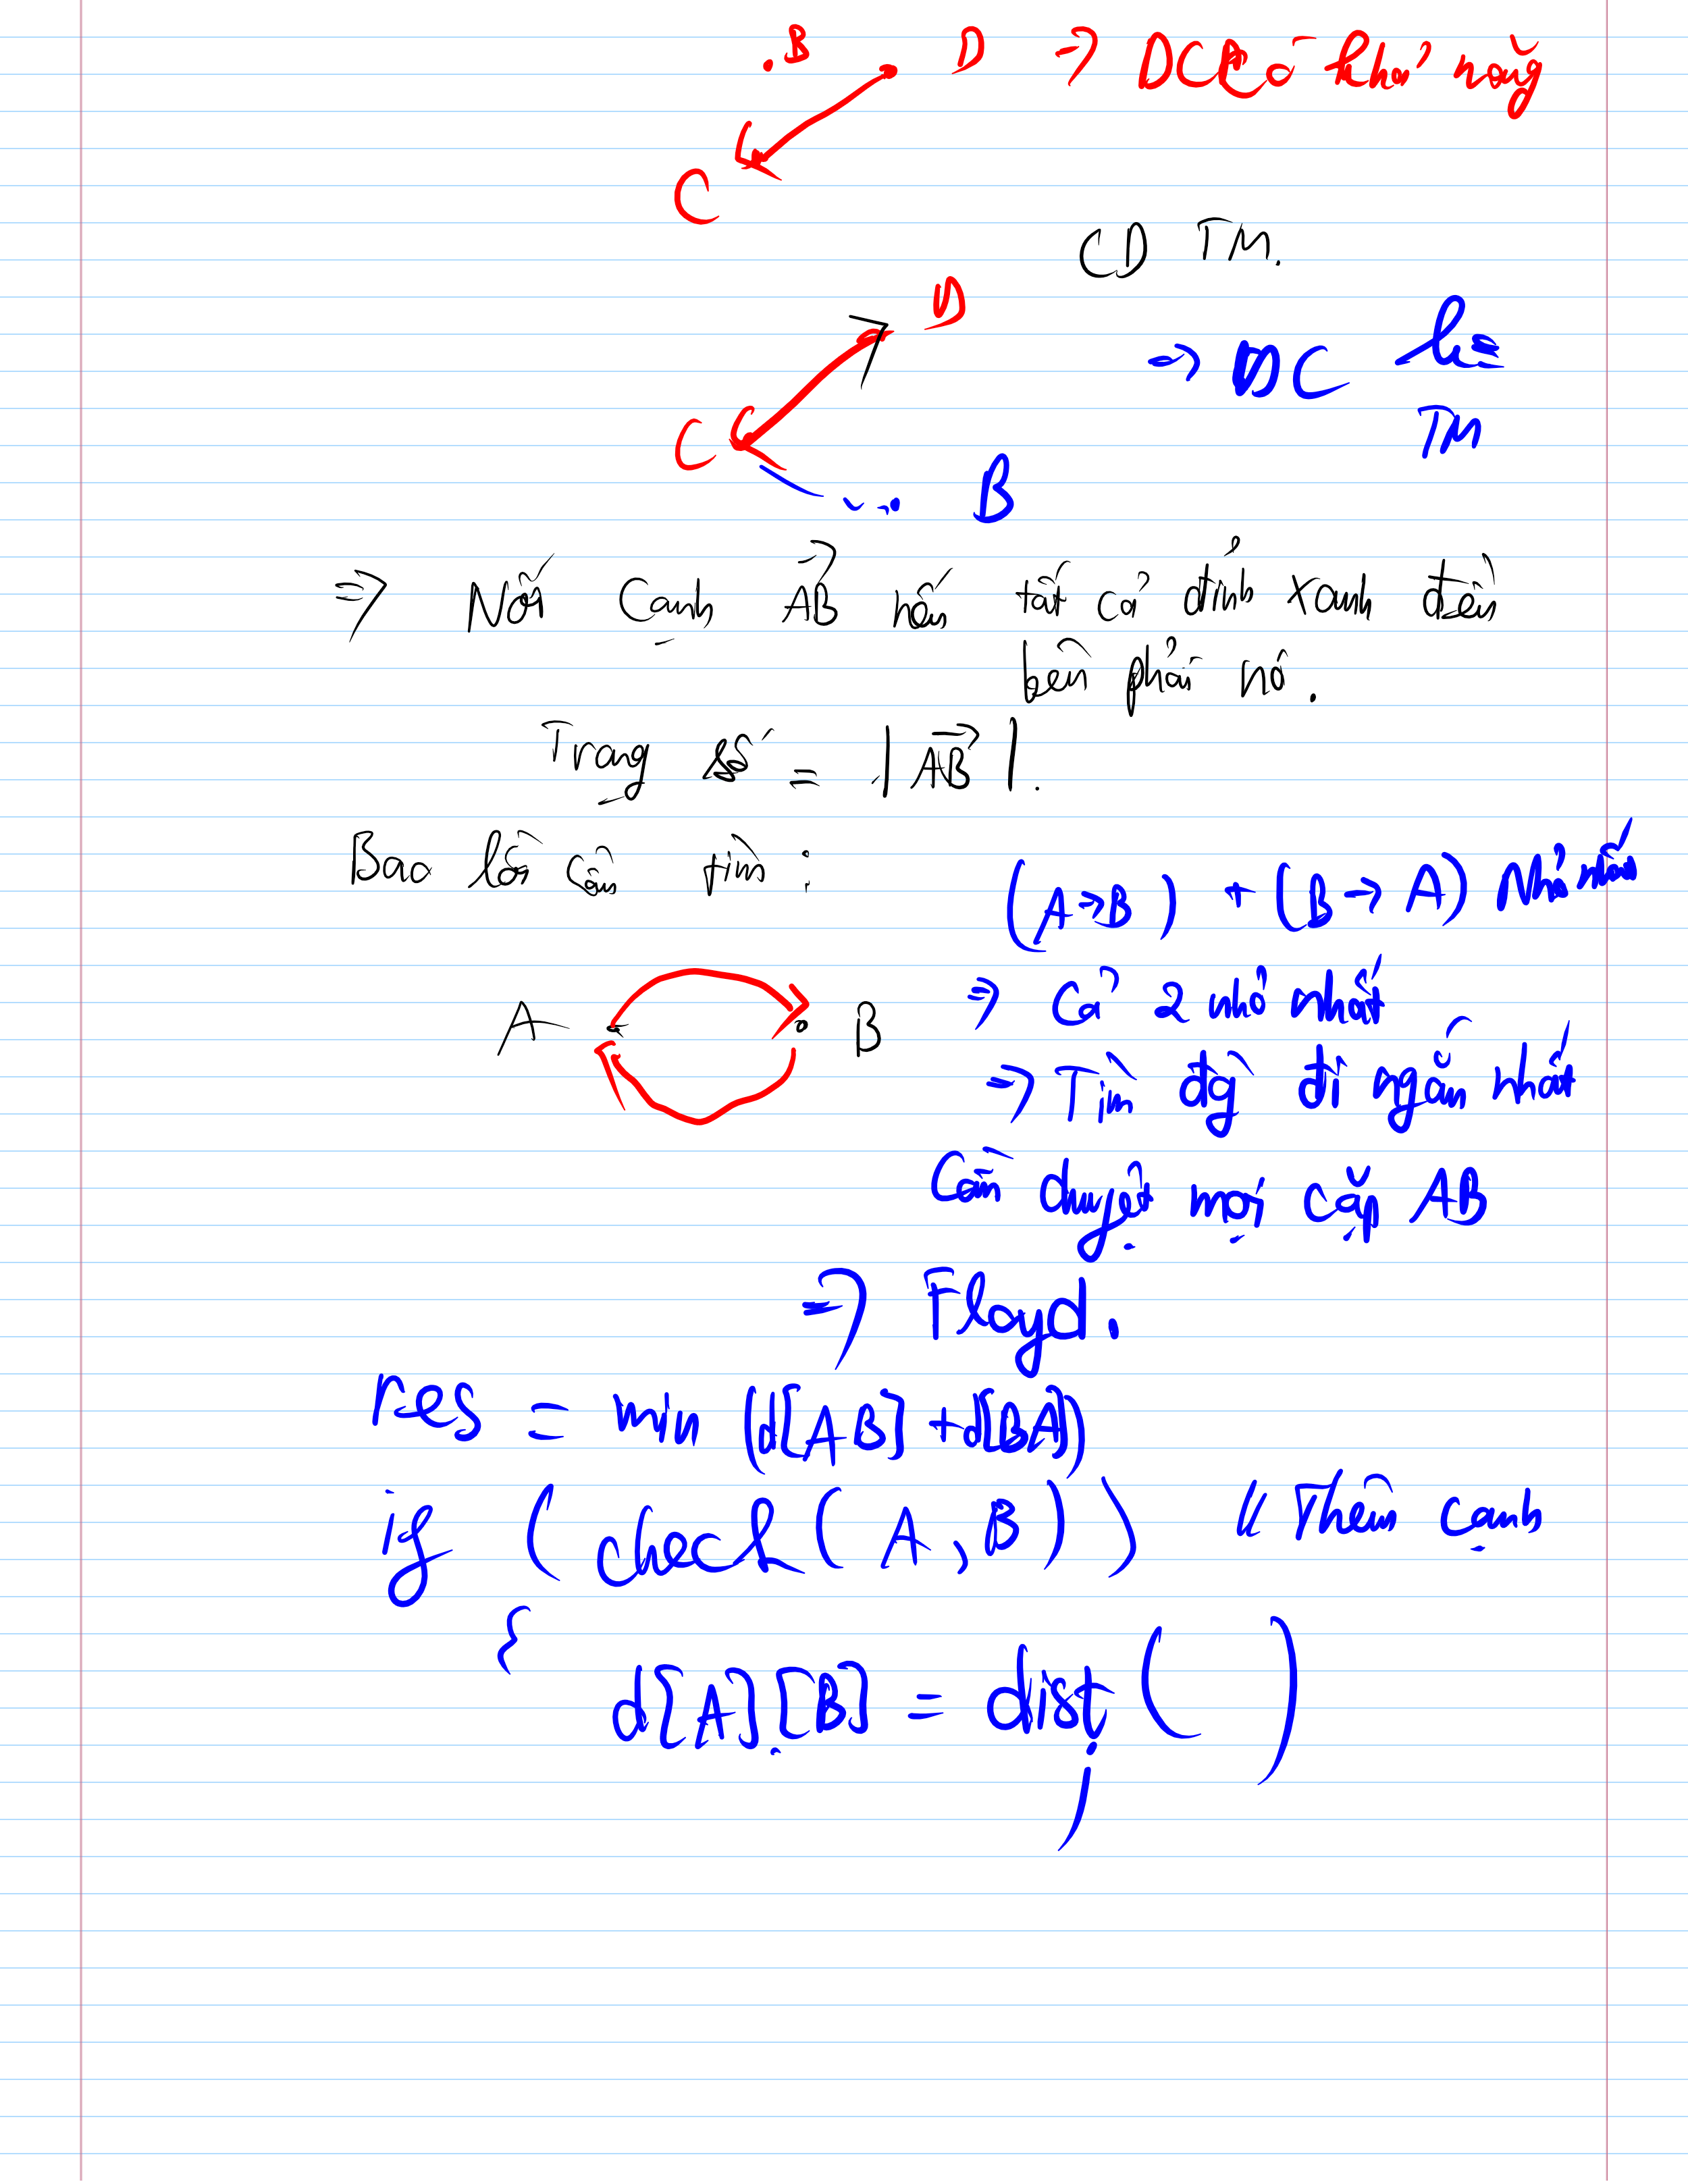 .B D ⇒ DC có khả năng
C
CD TM.
D
⇒ DC
TM
C
... B
⇒ Nối cạnh AB nếu tất cả đỉnh xanh đều
bên phải nó.
Trọng số = |AB|.
Bao lồi cần tìm :
(A→B) + (B→A) Nhỏ nhất
A B ⇒ Cả 2 nhỏ nhất
⇒ Tìm đg đi ngắn nhất
Cần duyệt mọi cặp AB
⇒ Floyd.
res = min (d[AB] + d[BA])
if (check(A,B)) // Thêm cạnh
{
d[A][B] = dist( )
;